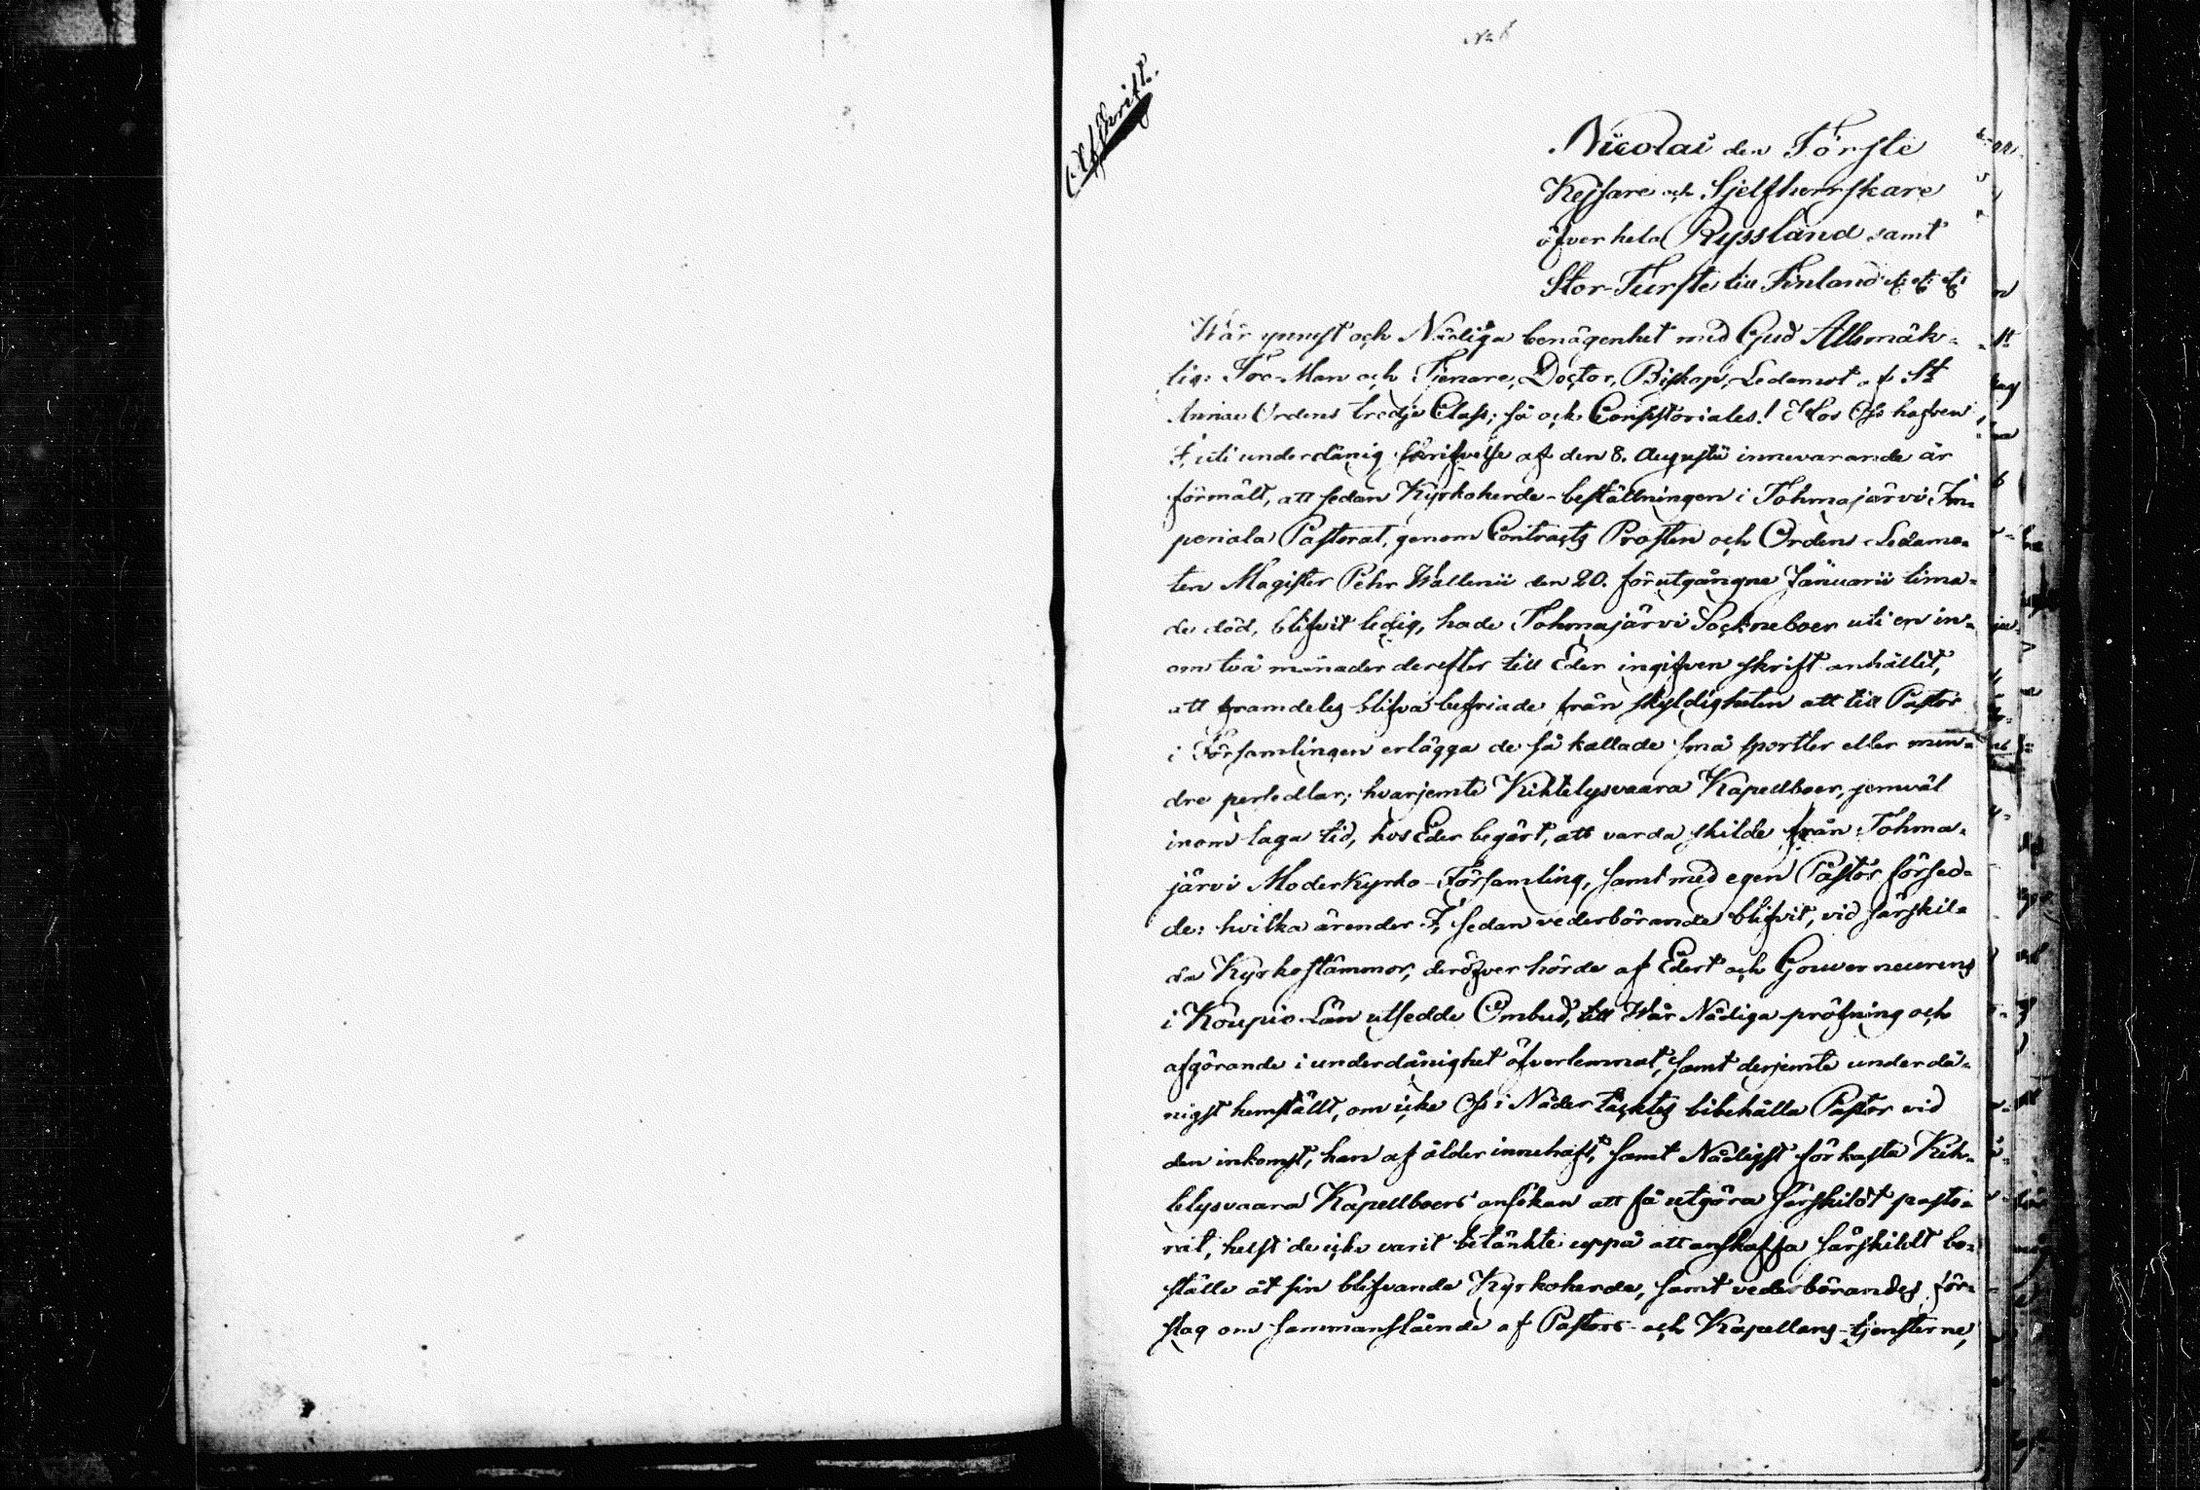 No 6
Afskrift.
Nicolai den Förste
Kejsare och Sjelfherrskare
öfver hela Ryssland samt
Stor-Furste till Finland etc etc etc
Wår ynnest och Nådiga benägenhet med Gud Allsmäk-
tig: Tro-Man och Tjenare, Doctor, Biskop, Ledamot af St
Annæ Ordens tredje Class; så och Consistoriales! Hos Oss hafven
I, uti underdånig skrifvelse af den 8. Augusti innevarande år
förmält, att sedan Kyrkoherde-beställningen i Tohmajärvi Im-
periala Pastorat, genom Contracts Prosten och Ordens Ledamo-
ten Magister Pehr Wallenii den 20. förutgångne Januarii tima-
de död, blifvit ledig, hade Tohmajärvi Sockneboer uti en in-
om två månader derefter till Eder ingifven skrift anhållit,
att framdeles blifva befriade från skyldigheten att till Pastor
i Församlingen erlägga de så kallade små sportler eller min-
dre persedlar; hvarjemte Kihtelysvaara Kapellboer, jemväl
inom laga tid, hos Eder begärt, att varda skilde från Tohma-
järvi Moderkyrko-Församling, samt med egen Pastor försed-
de: hvilka ärender I, sedan vederbörande blifvit, vid särskil-
da Kyrkostämmor, deröfver hörde af Edert och Gouverneurens
i Koupio Län utsedde Ombud, till Wår Nådiga pröfning och
afgörande i underdånighet öfverlemnat, samt derjemte underdå-
nigst hemställt, om icke Oss i Nåder täcktes bibehålla Pastor vid
den inkomst, han af ålder innehaft, samt Nådigst förkasta Kih-
telysvaara Kapellboers ansökan att få utgöra särskildt pasto-
rat, helst de icke varit betänkte uppå att anskaffa särskildt bo-
ställe åt sin blifvande Kyrkoherde, samt vederbörandes för-
slag om sammanslående af Pastors- och Kapellans-tjensterne,